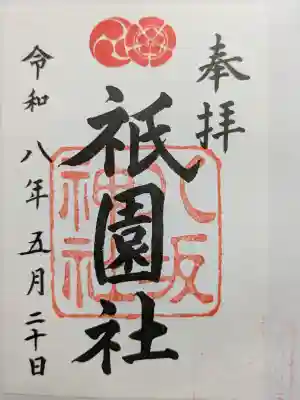 奉拝
祇園社
八坂
神社
令和八年五月二十日